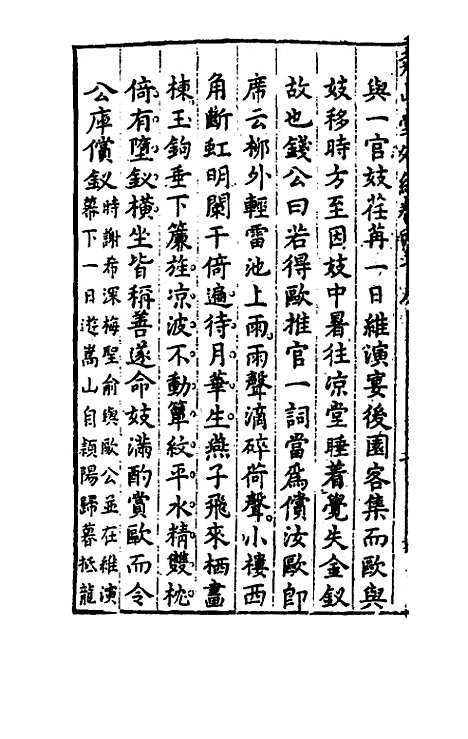 與一官妓荏苒一日維演宴後園客集而歐與
妓移時方至因妓中暑往凉堂睡着覺失金釵
故也錢公曰若得歐推官一詞當爲償汝歐卽
席云桞外輕雷池上雨雨聲滴碎荷聲小樓西
角斷虹明闌干倚遍待月華生燕子飛來栖畫
棟玉鉤垂下簾旌凉波不動簟紋平水精雙枕
倚有墮釵橫坐皆稱善遂命妓滿酌賞歐而令
公庫償釵時謝希深梅聖俞與歐公並在維演
幕下一日遊嵩山自潁陽歸暮抵龍